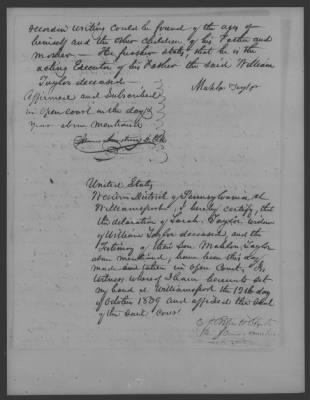 record in writing could be found of the ages of
himself and the other children of his Father and
mother — He further states, that he is the
acting Executor of his Father the said William
Taylor deceased —
Affirmed and Subscribed
in open court in the day &
year above mentioned
Mahlon Taylor
United States
Western District of Pennsylvania at
Williamsport, I hereby certify, that
the declaration of Sarah Taylor widow
of William Taylor deceased, and the
testimony of their Son Mahlon Taylor
above mentioned, have been this day
made and taken in open Court. In
Witness whereof I have hereunto set
my hand at Williamsport the 12th day
of October 1839 and affixed the Seal
of the Said Court